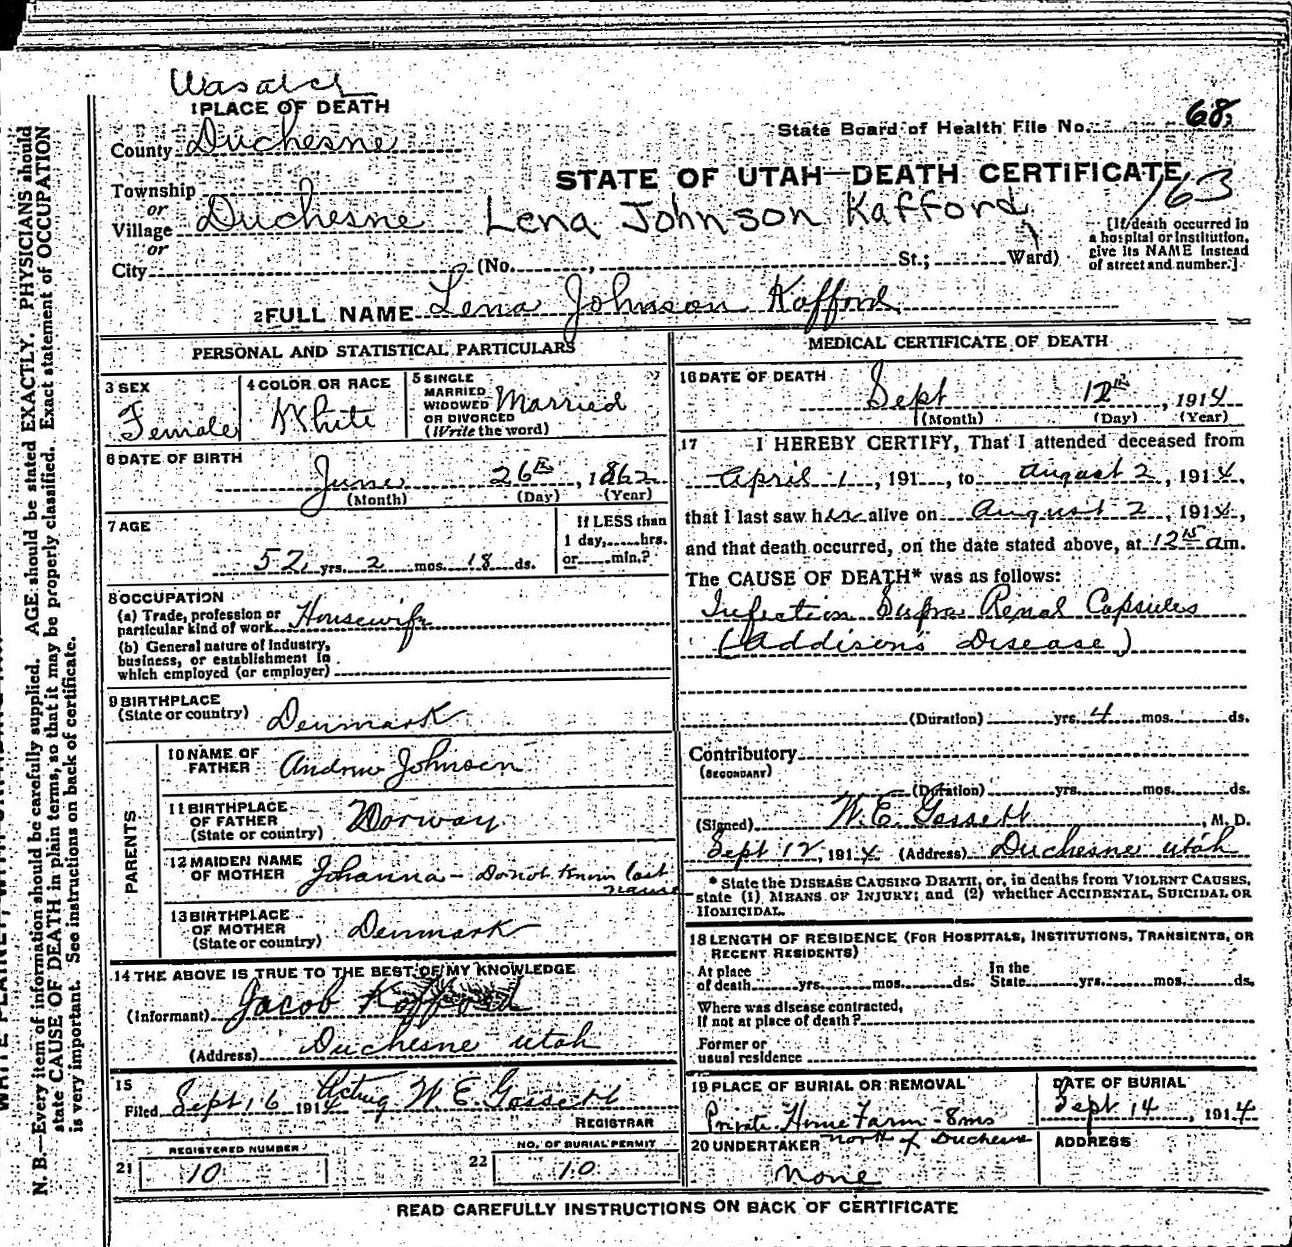 Wasatch
1 PLACE OF DEATH
County Duchesne
State Board of Health File No. 68
Township
or
Village Duchesne
or
City
STATE OF UTAH—DEATH CERTIFICATE
163
Lena Johnson Kafford
(No. , St.; Ward)
[If death occurred in
a hospital or institution,
give its NAME instead
of street and number.]
2 FULL NAME Lena Johnson Kafford
PERSONAL AND STATISTICAL PARTICULARS
3 SEX
Female
4 COLOR OR RACE
White
5 SINGLE
MARRIED
WIDOWED
OR DIVORCED
(Write the word)
Married
6 DATE OF BIRTH
June 26th, 1862
(Month) (Day) (Year)
7 AGE
52 yrs. 2 mos. 18 ds.
If LESS than
1 day, hrs.
or min.?
8 OCCUPATION
(a) Trade, profession or
particular kind of work Housewife
(b) General nature of industry,
business, or establishment in
which employed (or employer)
9 BIRTHPLACE
(State or country) Denmark
PARENTS
10 NAME OF
FATHER Andrew Johnson
11 BIRTHPLACE
OF FATHER
(State or country) Norway
12 MAIDEN NAME
OF MOTHER Johanna - Do not know last
name
13 BIRTHPLACE
OF MOTHER
(State or country) Denmark
14 THE ABOVE IS TRUE TO THE BEST OF MY KNOWLEDGE
(Informant) Jacob Kafford
(Address) Duchesne Utah
15
Filed Sept 16 1914 Acting W. E. Gossett
REGISTRAR
REGISTERED NUMBER
21 10
NO. OF BURIAL PERMIT
22 10
MEDICAL CERTIFICATE OF DEATH
16 DATE OF DEATH
Sept 12th, 1914
(Month) (Day) (Year)
17 I HEREBY CERTIFY, That I attended deceased from
April 1, 191 , to August 2, 1914,
that I last saw her alive on August 2, 1914,
and that death occurred, on the date stated above, at 12 15 a m.
The CAUSE OF DEATH* was as follows:
Infection Supra Renal Capsules
(Addison's Disease)
(Duration) yrs. 4 mos. ds.
Contributory
(SECONDARY)
(Duration) yrs. mos. ds.
(Signed) W. E. Gossett, M. D.
Sept 12, 1914 (Address) Duchesne Utah
* State the DISEASE CAUSING DEATH, or, in deaths from VIOLENT CAUSES,
state (1) MEANS OF INJURY; and (2) whether ACCIDENTAL, SUICIDAL OR
HOMICIDAL.
18 LENGTH OF RESIDENCE (FOR HOSPITALS, INSTITUTIONS, TRANSIENTS, OR
RECENT RESIDENTS)
At place
of death yrs. mos. ds.
In the
State yrs. mos. ds.
Where was disease contracted,
if not at place of death?
Former or
usual residence
19 PLACE OF BURIAL OR REMOVAL
Private Home Farm - 8 ms
north of Duchesne
DATE OF BURIAL
Sept 14, 1914
20 UNDERTAKER
None
ADDRESS
READ CAREFULLY INSTRUCTIONS ON BACK OF CERTIFICATE
N. B.—Every item of information should be carefully supplied. AGE should be stated EXACTLY. PHYSICIANS should
state CAUSE OF DEATH in plain terms, so that it may be properly classified. Exact statement of OCCUPATION
is very important. See instructions on back of certificate.